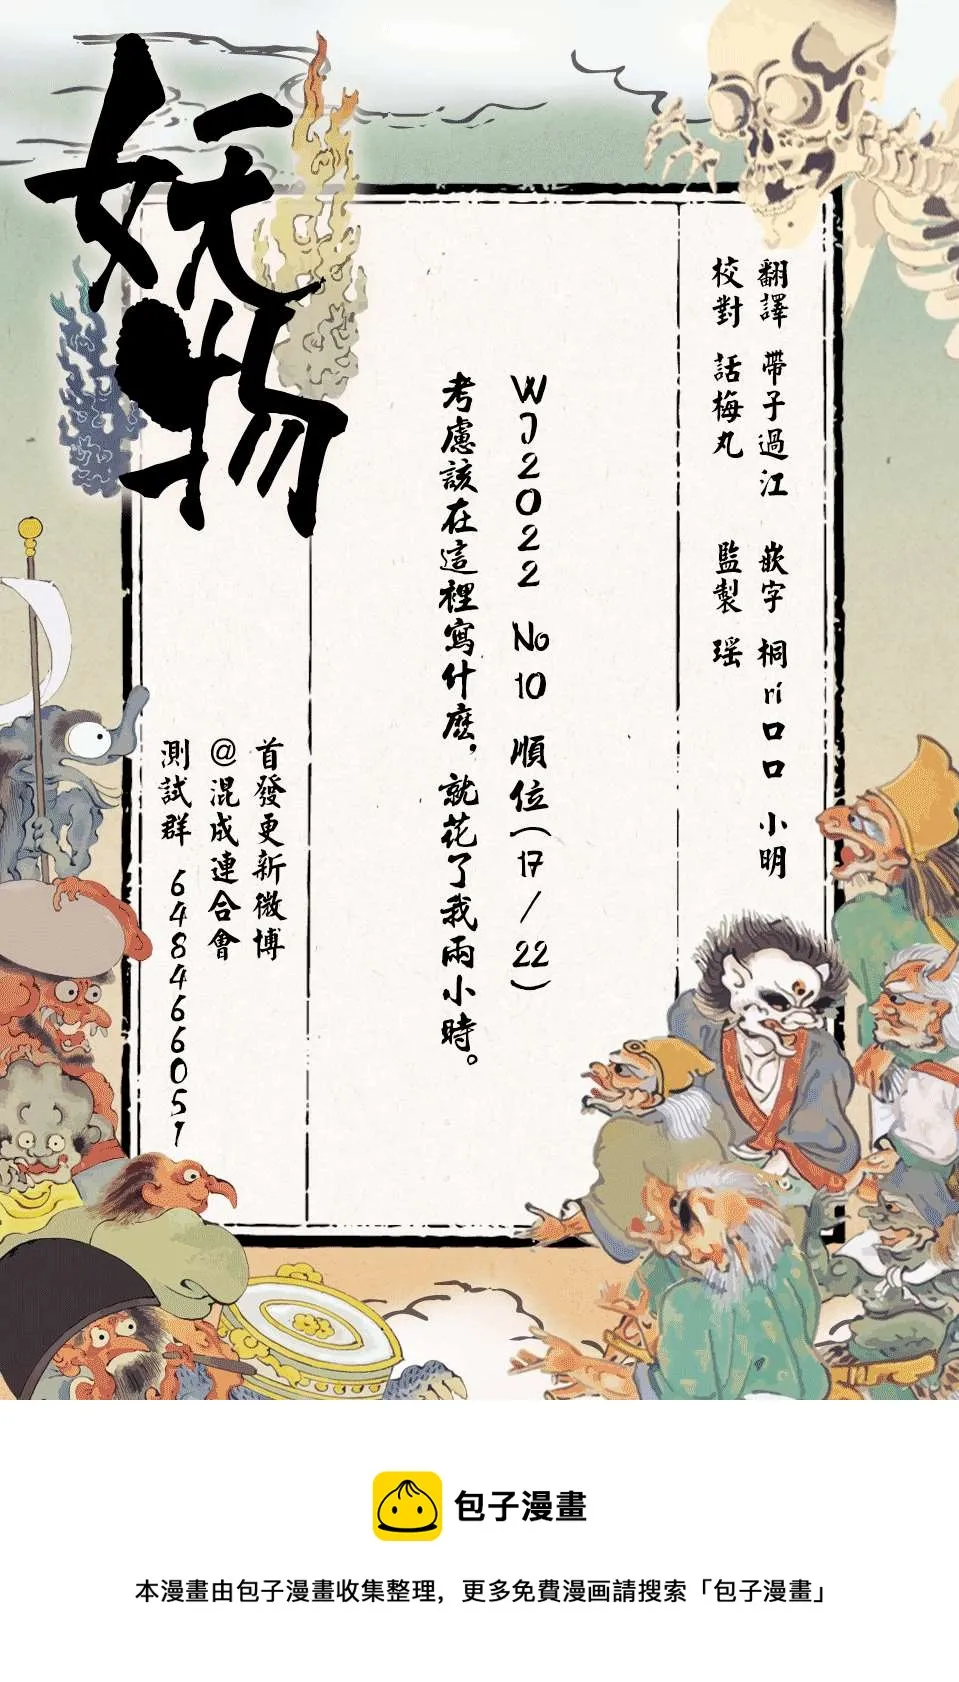 妖物
翻譯 帶子過江 嵌字 桐ri口口 小明
校對 話梅丸 監製 瑶
WJ2022 No10 順位(17/22)
考慮該在這裡寫什麽，就花了我兩小時。
首發更新微博
@混成連合會
測試群 648466051
包子漫畫
本漫畫由包子漫畫收集整理，更多免費漫画請搜索「包子漫畫」